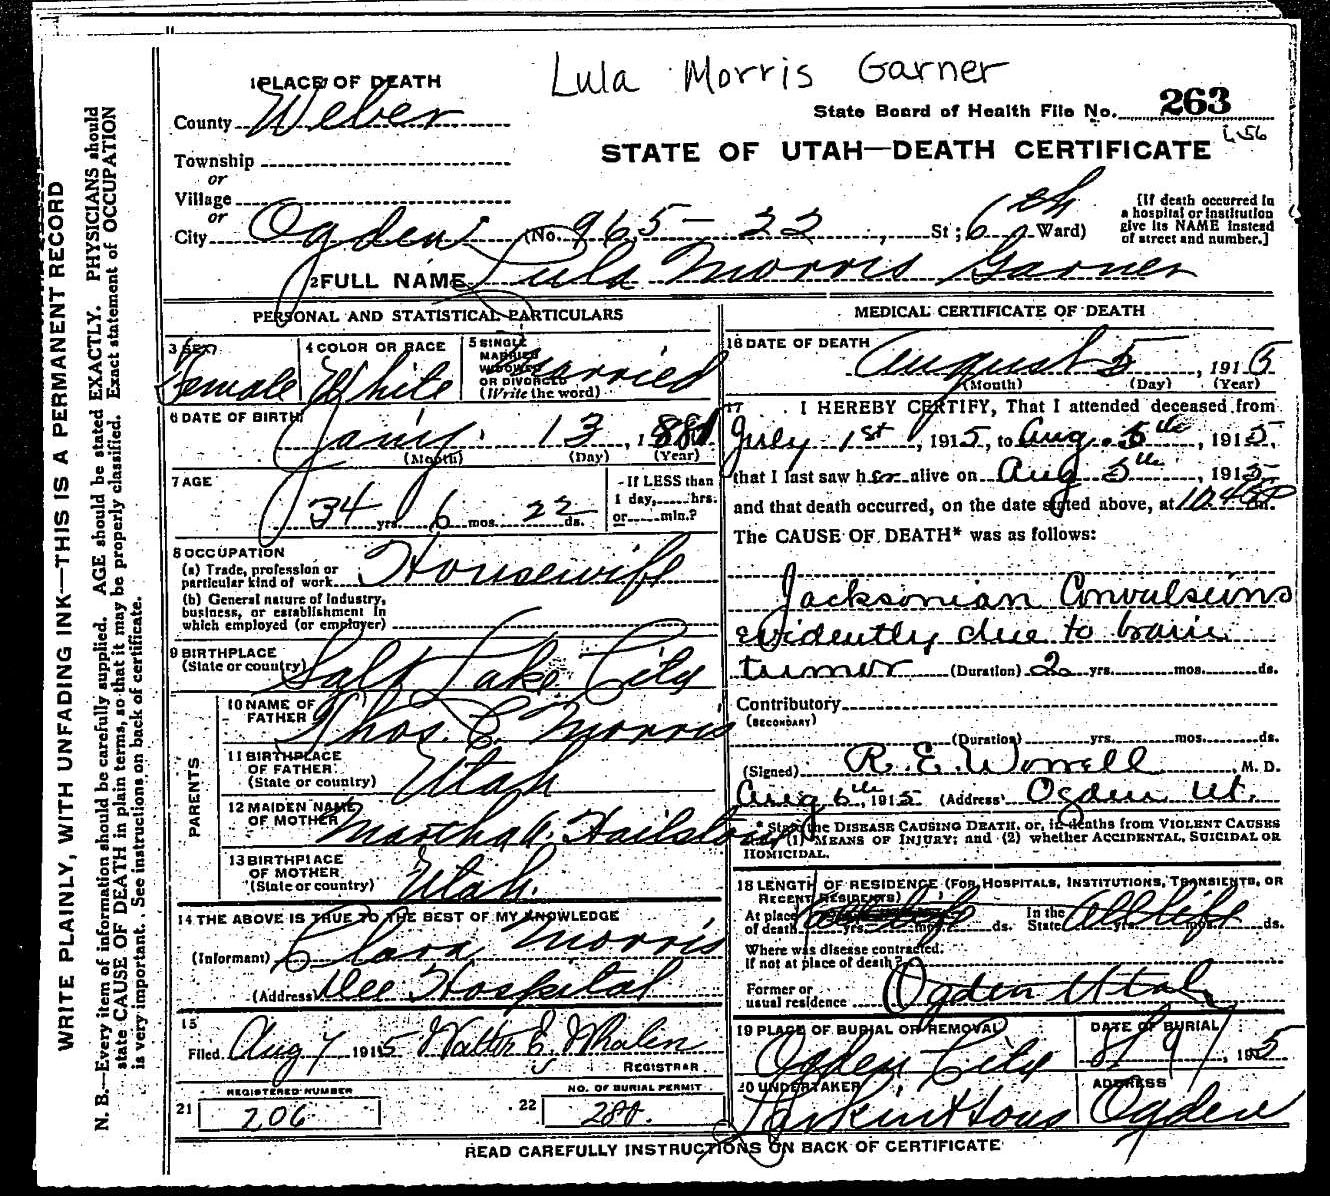 Lula Morris Garner
1 PLACE OF DEATH
County Weber
State Board of Health File No. 263
656
Township
or
Village
or
City Ogden (No. 965 - 22 St; 6th Ward)
STATE OF UTAH—DEATH CERTIFICATE
[If death occurred in a hospital or institution give its NAME instead of street and number.]
2 FULL NAME Lula Morris Garner
PERSONAL AND STATISTICAL PARTICULARS
3 SEX Female
4 COLOR OR RACE White
5 SINGLE MARRIED WIDOWED OR DIVORCED (Write the word) Married
6 DATE OF BIRTH Jany. 13, 1881
(Month) (Day) (Year)
7 AGE
34 yrs. 6 mos. 22 ds.
If LESS than 1 day, hrs. or min.?
8 OCCUPATION
(a) Trade, profession or particular kind of work Housewife
(b) General nature of industry, business, or establishment in which employed (or employer)
9 BIRTHPLACE
(State or country) Salt Lake City
PARENTS
10 NAME OF FATHER Thos. C. Morris
11 BIRTHPLACE OF FATHER (State or country) Utah
12 MAIDEN NAME OF MOTHER Martha A.
13 BIRTHPLACE OF MOTHER (State or country) Utah.
14 THE ABOVE IS TRUE TO THE BEST OF MY KNOWLEDGE
(Informant) Clara Morris
(Address) Dee Hospital
15
Filed Aug 7 1915 Walter E. Whalen
REGISTRAR
21 REGISTERED NUMBER 206
22 NO. OF BURIAL PERMIT 280.
MEDICAL CERTIFICATE OF DEATH
16 DATE OF DEATH August 5, 1915
(Month) (Day) (Year)
17 I HEREBY CERTIFY, That I attended deceased from
July 1st, 1915, to Aug. 5th, 1915,
that I last saw her alive on Aug 5th, 1915
and that death occurred, on the date stated above, at 10.45 P m.
The CAUSE OF DEATH* was as follows:
Jacksonian Convulsions
evidently due to brain
tumor (Duration) 2 yrs. mos. ds.
Contributory
(SECONDARY)
(Duration) yrs. mos. ds.
(Signed) R. E. Worrell, M. D.
Aug 6th, 1915 (Address) Ogden Ut.
* State the DISEASE CAUSING DEATH, or, in deaths from VIOLENT CAUSES
state (1) MEANS OF INJURY; and (2) whether ACCIDENTAL, SUICIDAL OR
HOMICIDAL.
18 LENGTH OF RESIDENCE (FOR HOSPITALS, INSTITUTIONS, TRANSIENTS, OR
RECENT RESIDENTS)
At place of death yrs. mos. ds. In the State All life yrs. mos. ds.
Where was disease contracted,
if not at place of death?
Former or usual residence Ogden Utah
19 PLACE OF BURIAL OR REMOVAL Ogden City
DATE OF BURIAL 8/9/, 1915
20 UNDERTAKER Larkin & Sons
ADDRESS Ogden
READ CAREFULLY INSTRUCTIONS ON BACK OF CERTIFICATE
WRITE PLAINLY, WITH UNFADING INK—THIS IS A PERMANENT RECORD
N. B.—Every item of information should be carefully supplied. AGE should be stated EXACTLY. PHYSICIANS should
state CAUSE OF DEATH in plain terms, so that it may be properly classified. Exact statement of OCCUPATION
is very important. See instructions on back of certificate.